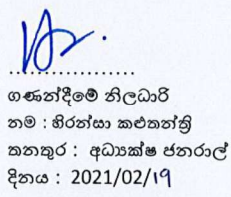 ගණන්දීමේ නිලධාරි
නම : හිරන්සා කළුතන්ත්‍රි
තනතුර : අධ්‍යක්ෂ ජනරාල්
දිනය : 2021/02/19